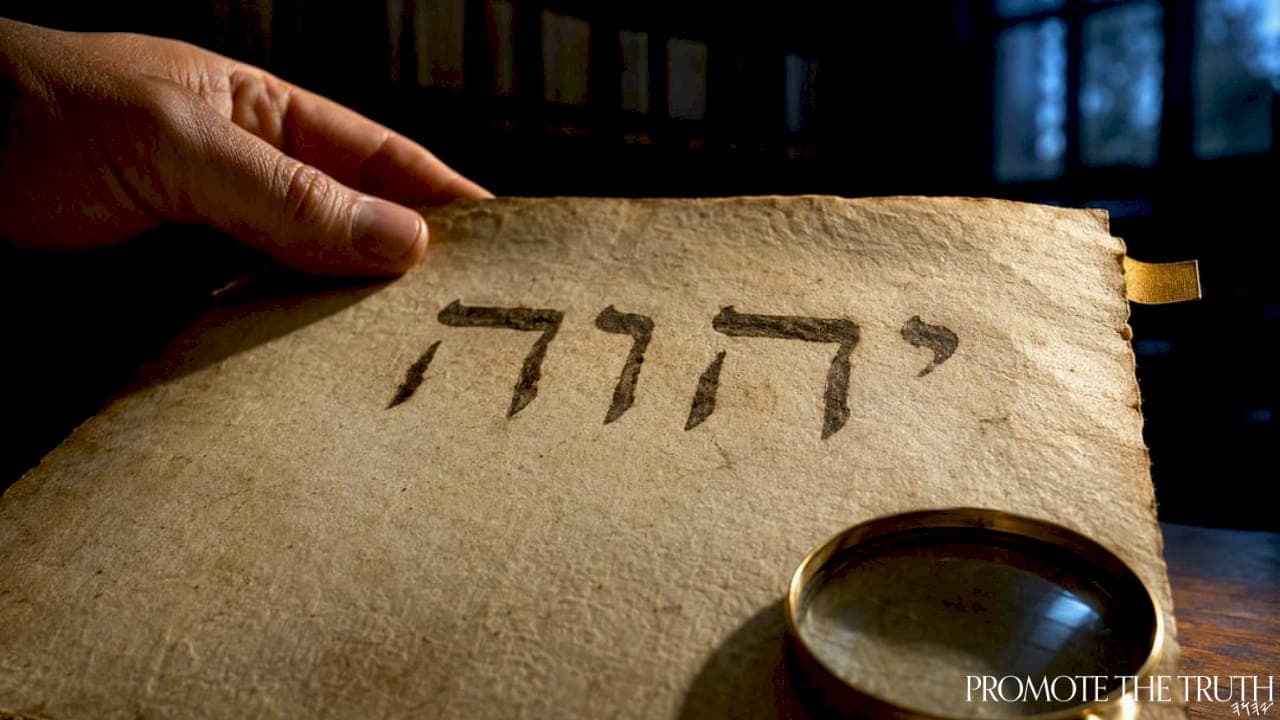 יהוה
PROMOTE THE TRUTH
𐤉𐤄𐤅𐤄